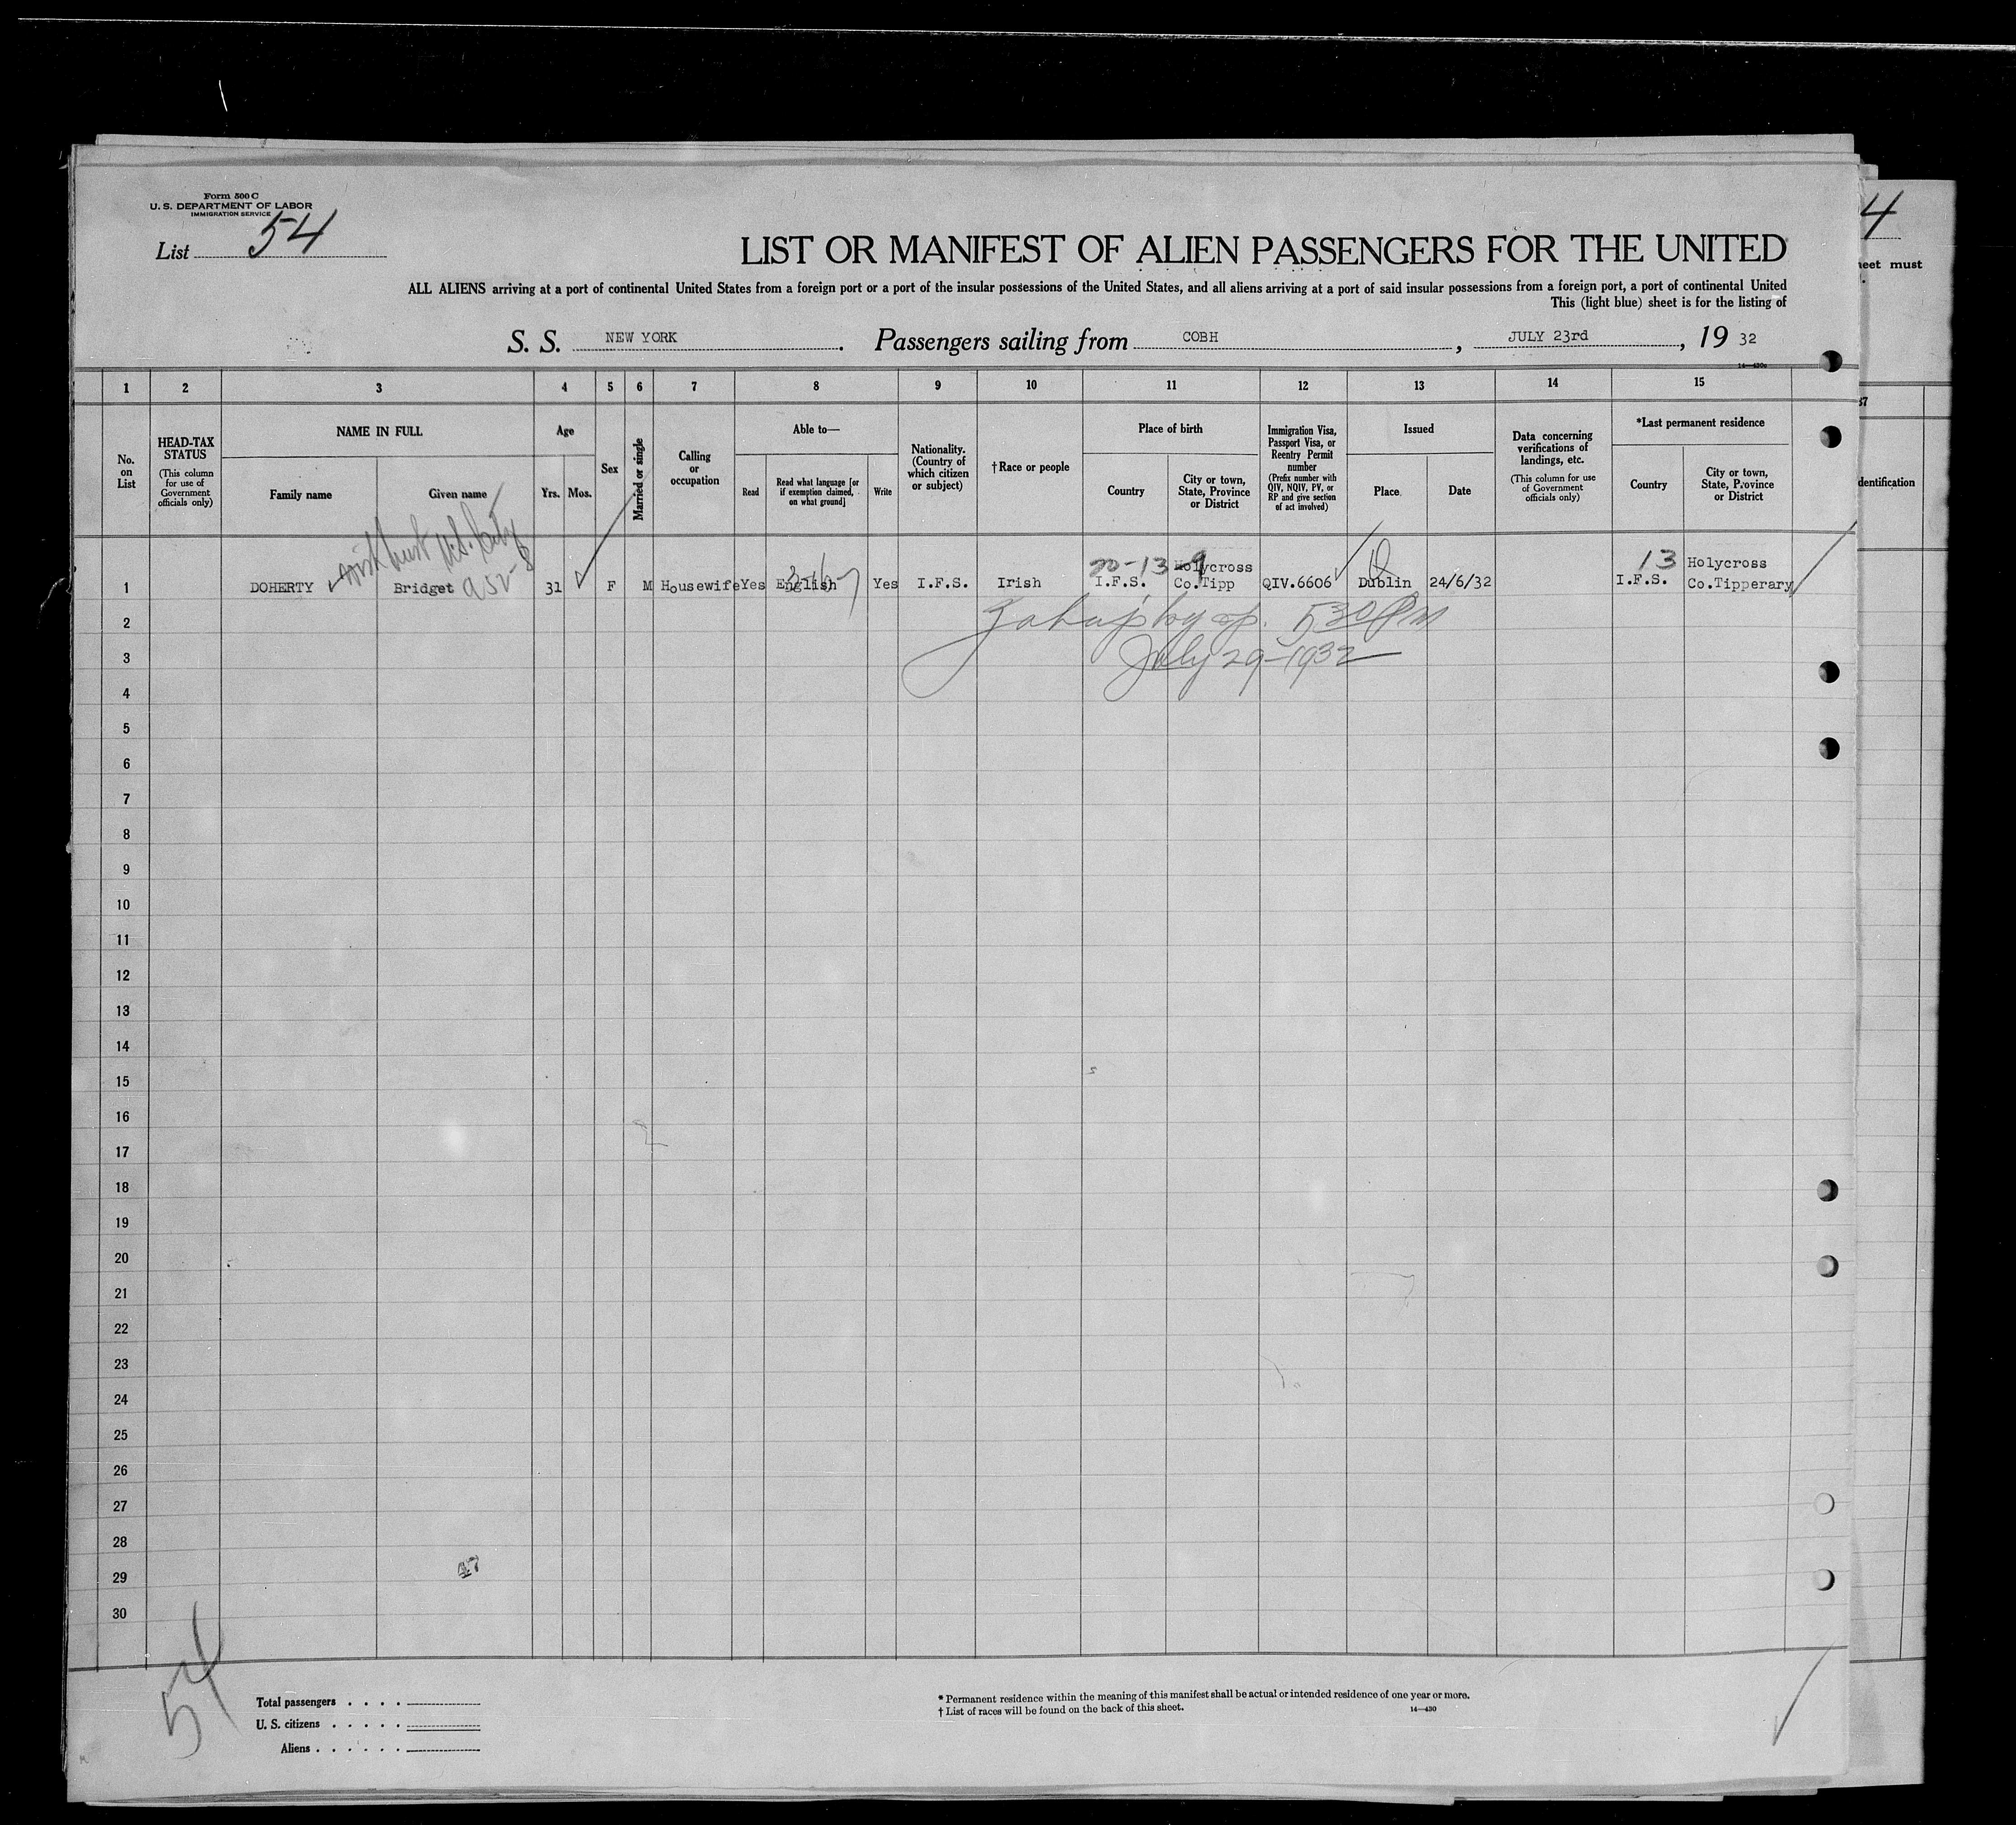 Form 500 C
U. S. DEPARTMENT OF LABOR
IMMIGRATION SERVICE
List 54
4
LIST OR MANIFEST OF ALIEN PASSENGERS FOR THE UNITED
eet must
ALL ALIENS arriving at a port of continental United States from a foreign port or a port of the insular possessions of the United States, and all aliens arriving at a port of said insular possessions from a foreign port, a port of continental United
This (light blue) sheet is for the listing of
S. S. NEW YORK. Passengers sailing from COBH, JULY 23rd, 19 32
1 2 3 4 5 6 7 8 9 10 11 12 13 14 15
37
No. on List
HEAD-TAX STATUS (This column for use of Government officials only)
NAME IN FULL
Family name
Given name
Age
Yrs. Mos.
Sex
Married or single
Calling or occupation
Able to—
Read
Read what language [or if exemption claimed, on what ground]
Write
Nationality. (Country of which citizen or subject)
† Race or people
Place of birth
Country
City or town, State, Province or District
Immigration Visa, Passport Visa, or Reentry Permit number (Prefix number with QIV, NQIV, PV, or RP and give section of act involved)
Issued
Place
Date
Data concerning verifications of landings, etc. (This column for use of Government officials only)
*Last permanent residence
Country
City or town, State, Province or District
dentification
20-13 9 Holycross 13 Holycross
1 DOHERTY Bridget 31 F M Housewife Yes English Yes I.F.S. Irish I.F.S. Co.Tipp QIV.6606 Dublin 24/6/32 I.F.S. Co.Tipperary
2 5 30 PM
3 July 29-1932
4
5
6
7
8
9
10
11
12
13
14
15
16
17
18
19
20
21
22
23
24
25
26
27
28
29
30
54
Total passengers . . . .
U. S. citizens . . . . .
Aliens . . . . . .
* Permanent residence within the meaning of this manifest shall be actual or intended residence of one year or more.
† List of races will be found on the back of this sheet.
14—430